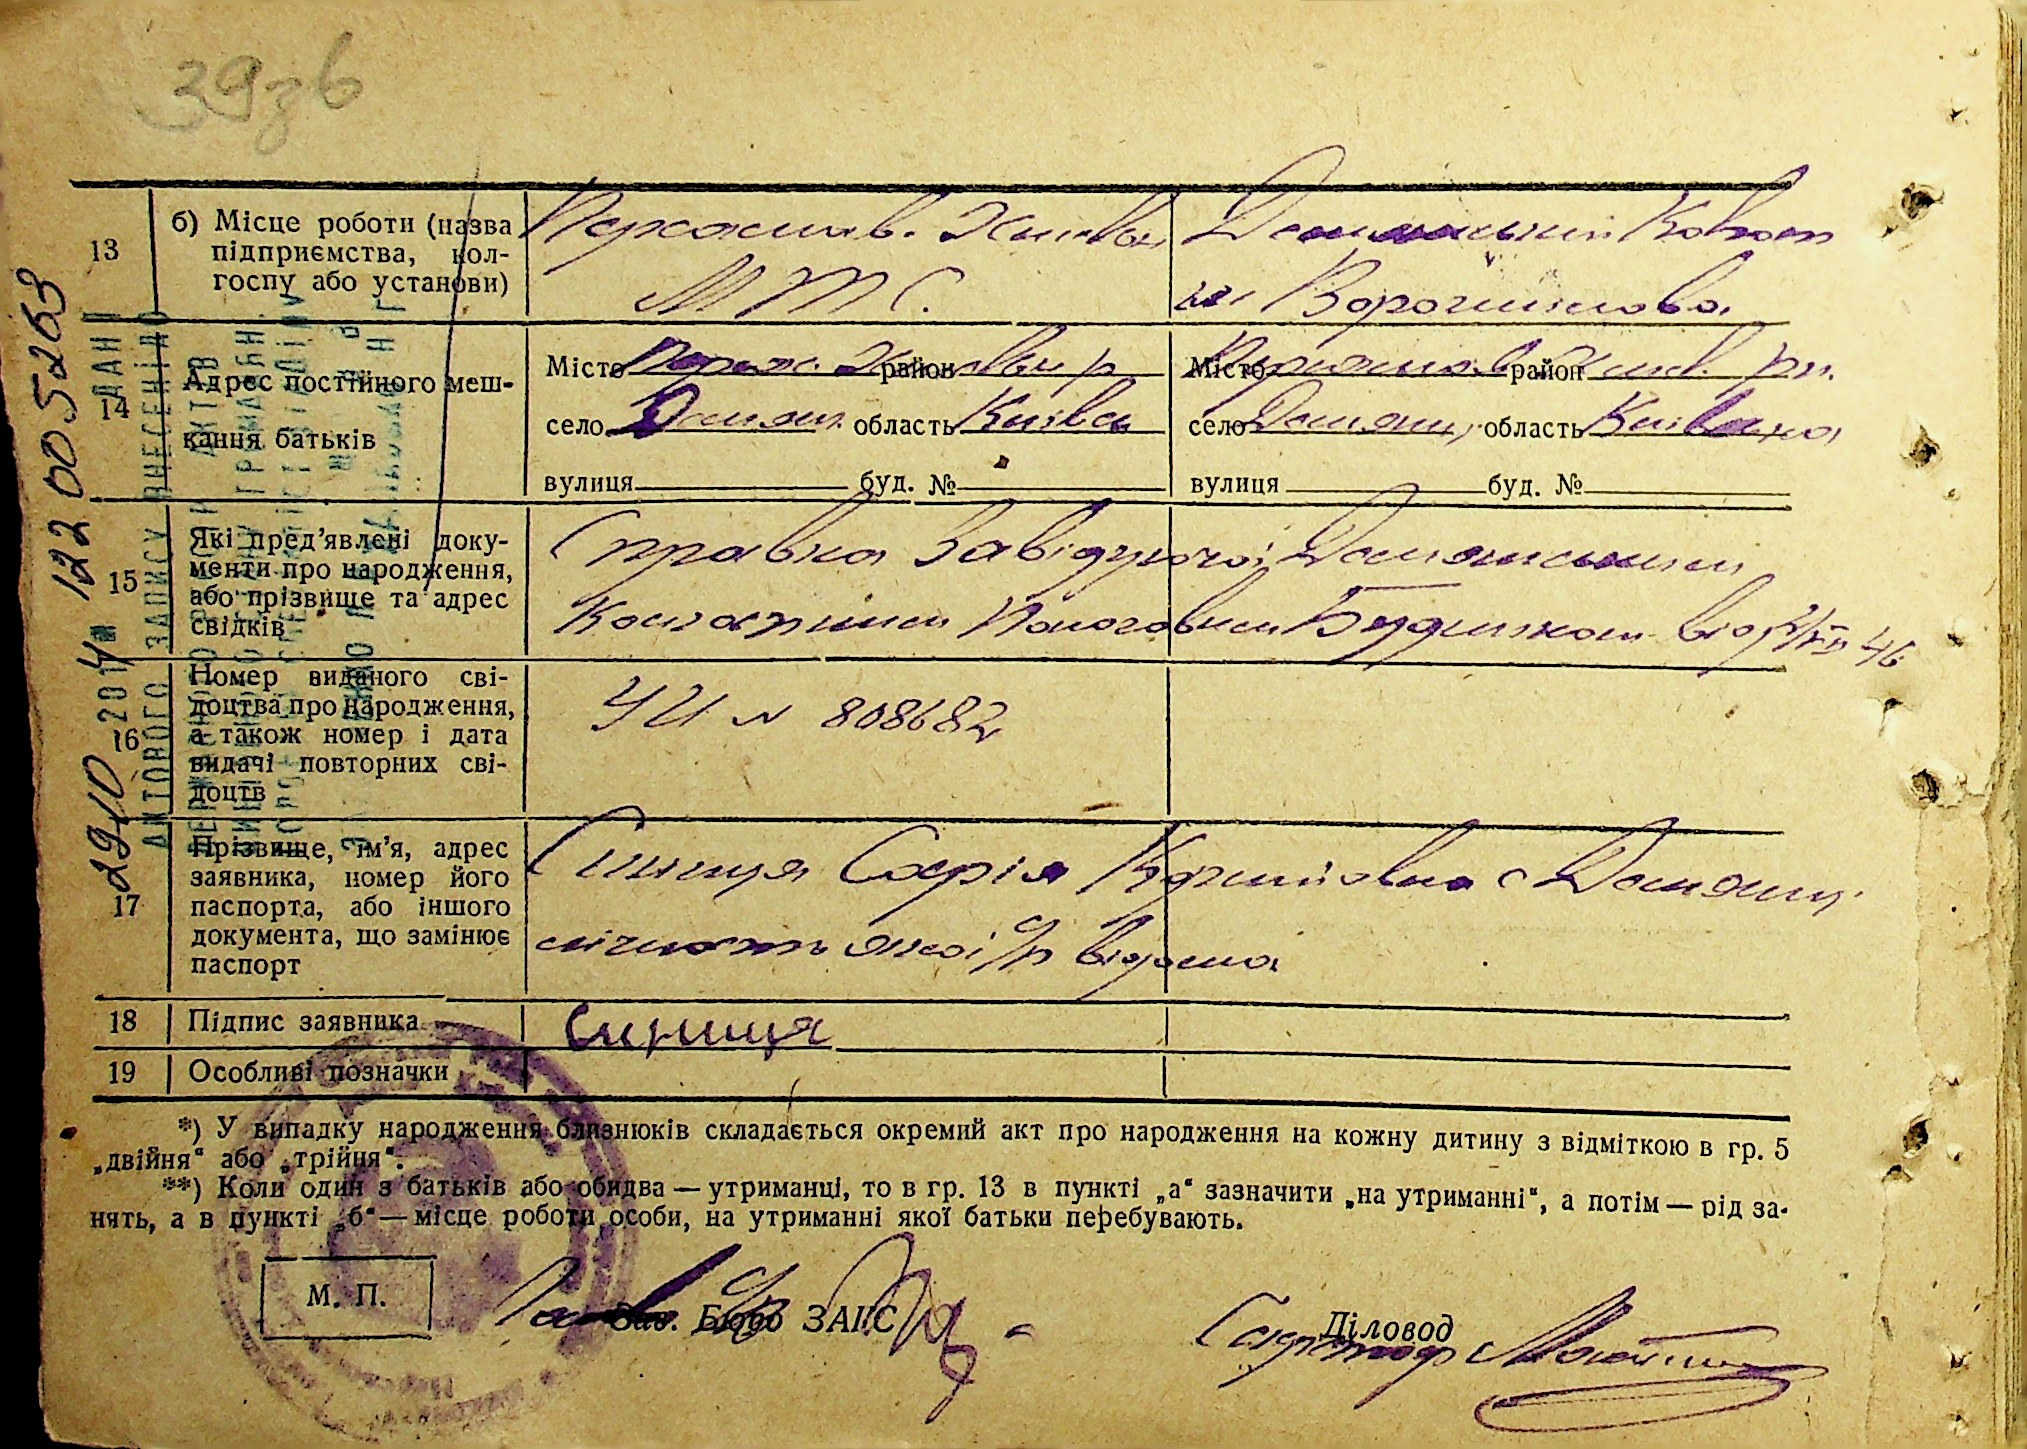 39зв
13
б) Місце роботи (назва
підприємства, кол-
госпу або установи)
Переяслав. Хмельн
М Т С.
Дем'янський Колгосп
ім Ворошилова
14
Адрес постійного меш-
кання батьків
Місто Переяс. Хмельн район р
село Дем'янц. область Київськ
вулиця буд. №
Місто Переяслав Хмел. район рн.
село Дем'янці, область Київська
вулиця буд. №
15
Які пред'явлені доку-
менти про народження,
або прізвище та адрес
свідків
Справка Завідуючої Дем'янським
Колгоспним Пологовим Будинком від 46
16
Номер виданого сві-
доцтва про народження,
а також номер і дата
видачі повторних сві-
доцтв
УИ № 808682
17
Прізвище, ім'я, адрес
заявника, номер його
паспорта, або іншого
документа, що замінює
паспорт
Синиця Софія с Дем'янці
лічность якої с/р відома
18
Підпис заявника
Синиця
19
Особливі позначки
*) У випадку народження близнюків складається окремий акт про народження на кожну дитину з відміткою в гр. 5
„двійня“ або „трійня“.
**) Коли один з батьків або обидва — утриманці, то в гр. 13 в пункті „а“ зазначити „на утриманні“, а потім — рід за-
нять, а в пункті „б“ — місце роботи особи, на утриманні якої батьки перебувають.
М. П.
Зав. Бюро ЗАГС
Діловод
Секретар
29 10 2014 122 005263
ДАНІ
АКТОВОГО ЗАПИСУ ВНЕСЕНІ ДО